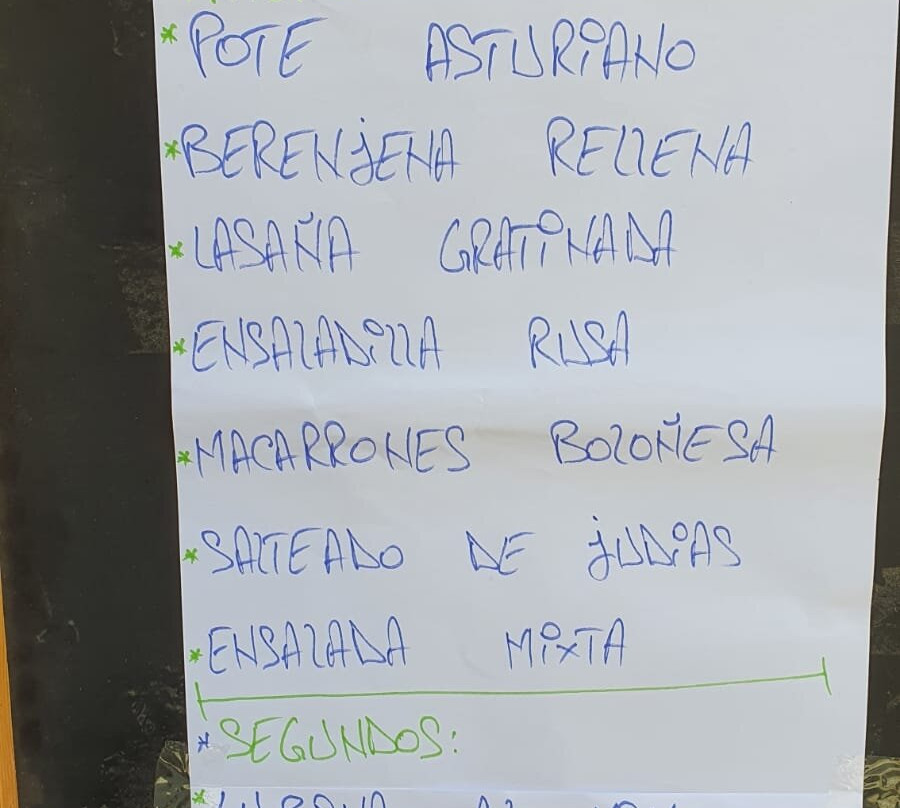 * POTE ASTURIANO
* BERENJENA RELLENA
* LASAÑA GRATINADA
* ENSALADILLA RUSA
* MACARRONES BOLOÑESA
* SALTEADO DE JUDIAS
* ENSALADA MIXTA
* SEGUNDOS: